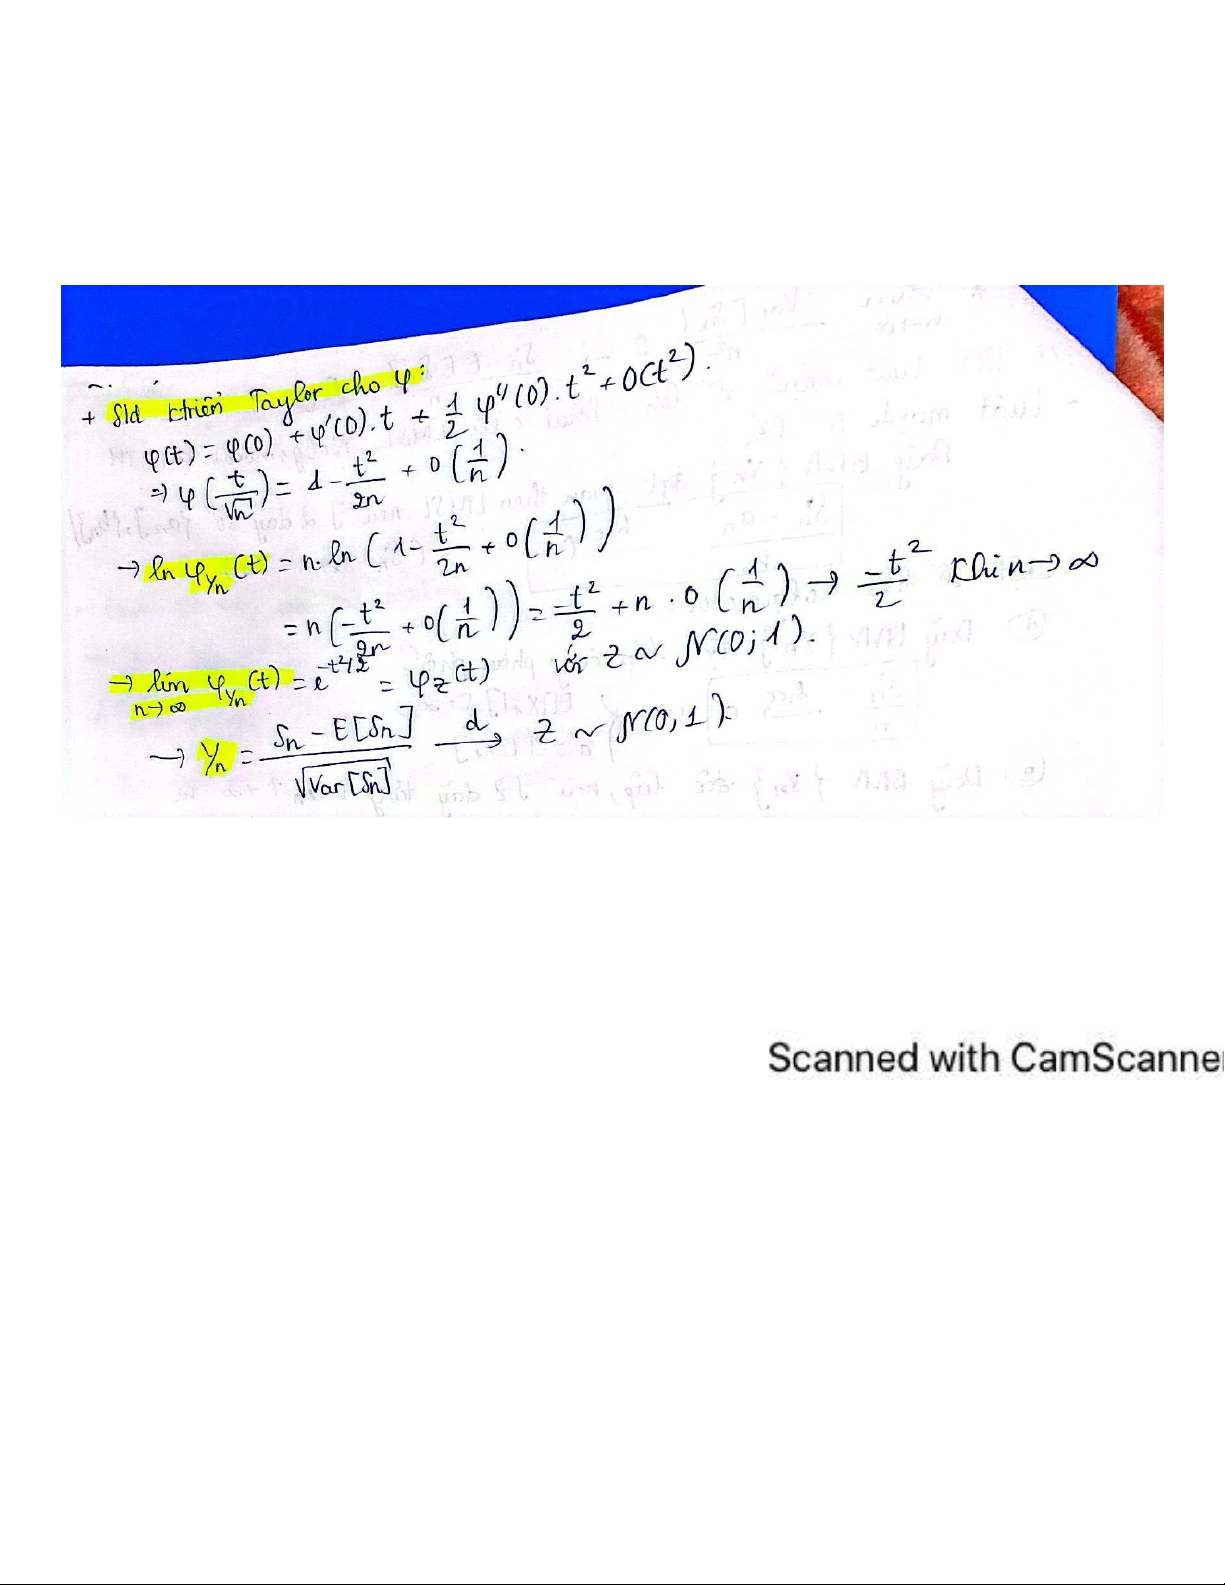 + Sld khiển Taylor cho φ:
φ(t) = φ(0) + φ'(0).t + 1/2 φ''(0).t² + O(t²).
⇒ φ(t/√n) = 1 - t²/2n + o(1/n).
→ ln φ_Yn(t) = n.ln(1 - t²/2n + o(1/n))
= n(-t²/2n + o(1/n)) = -t²/2 + n.o(1/n) → -t²/2 khi n→∞
→ lim n→∞ φ_Yn(t) = e^(-t²/2) = φ_Z(t) với Z ~ N(0;1).
→ Yn = (Sn - E[Sn])/√Var[Sn] →d Z ~ N(0,1).
Scanned with CamScanner